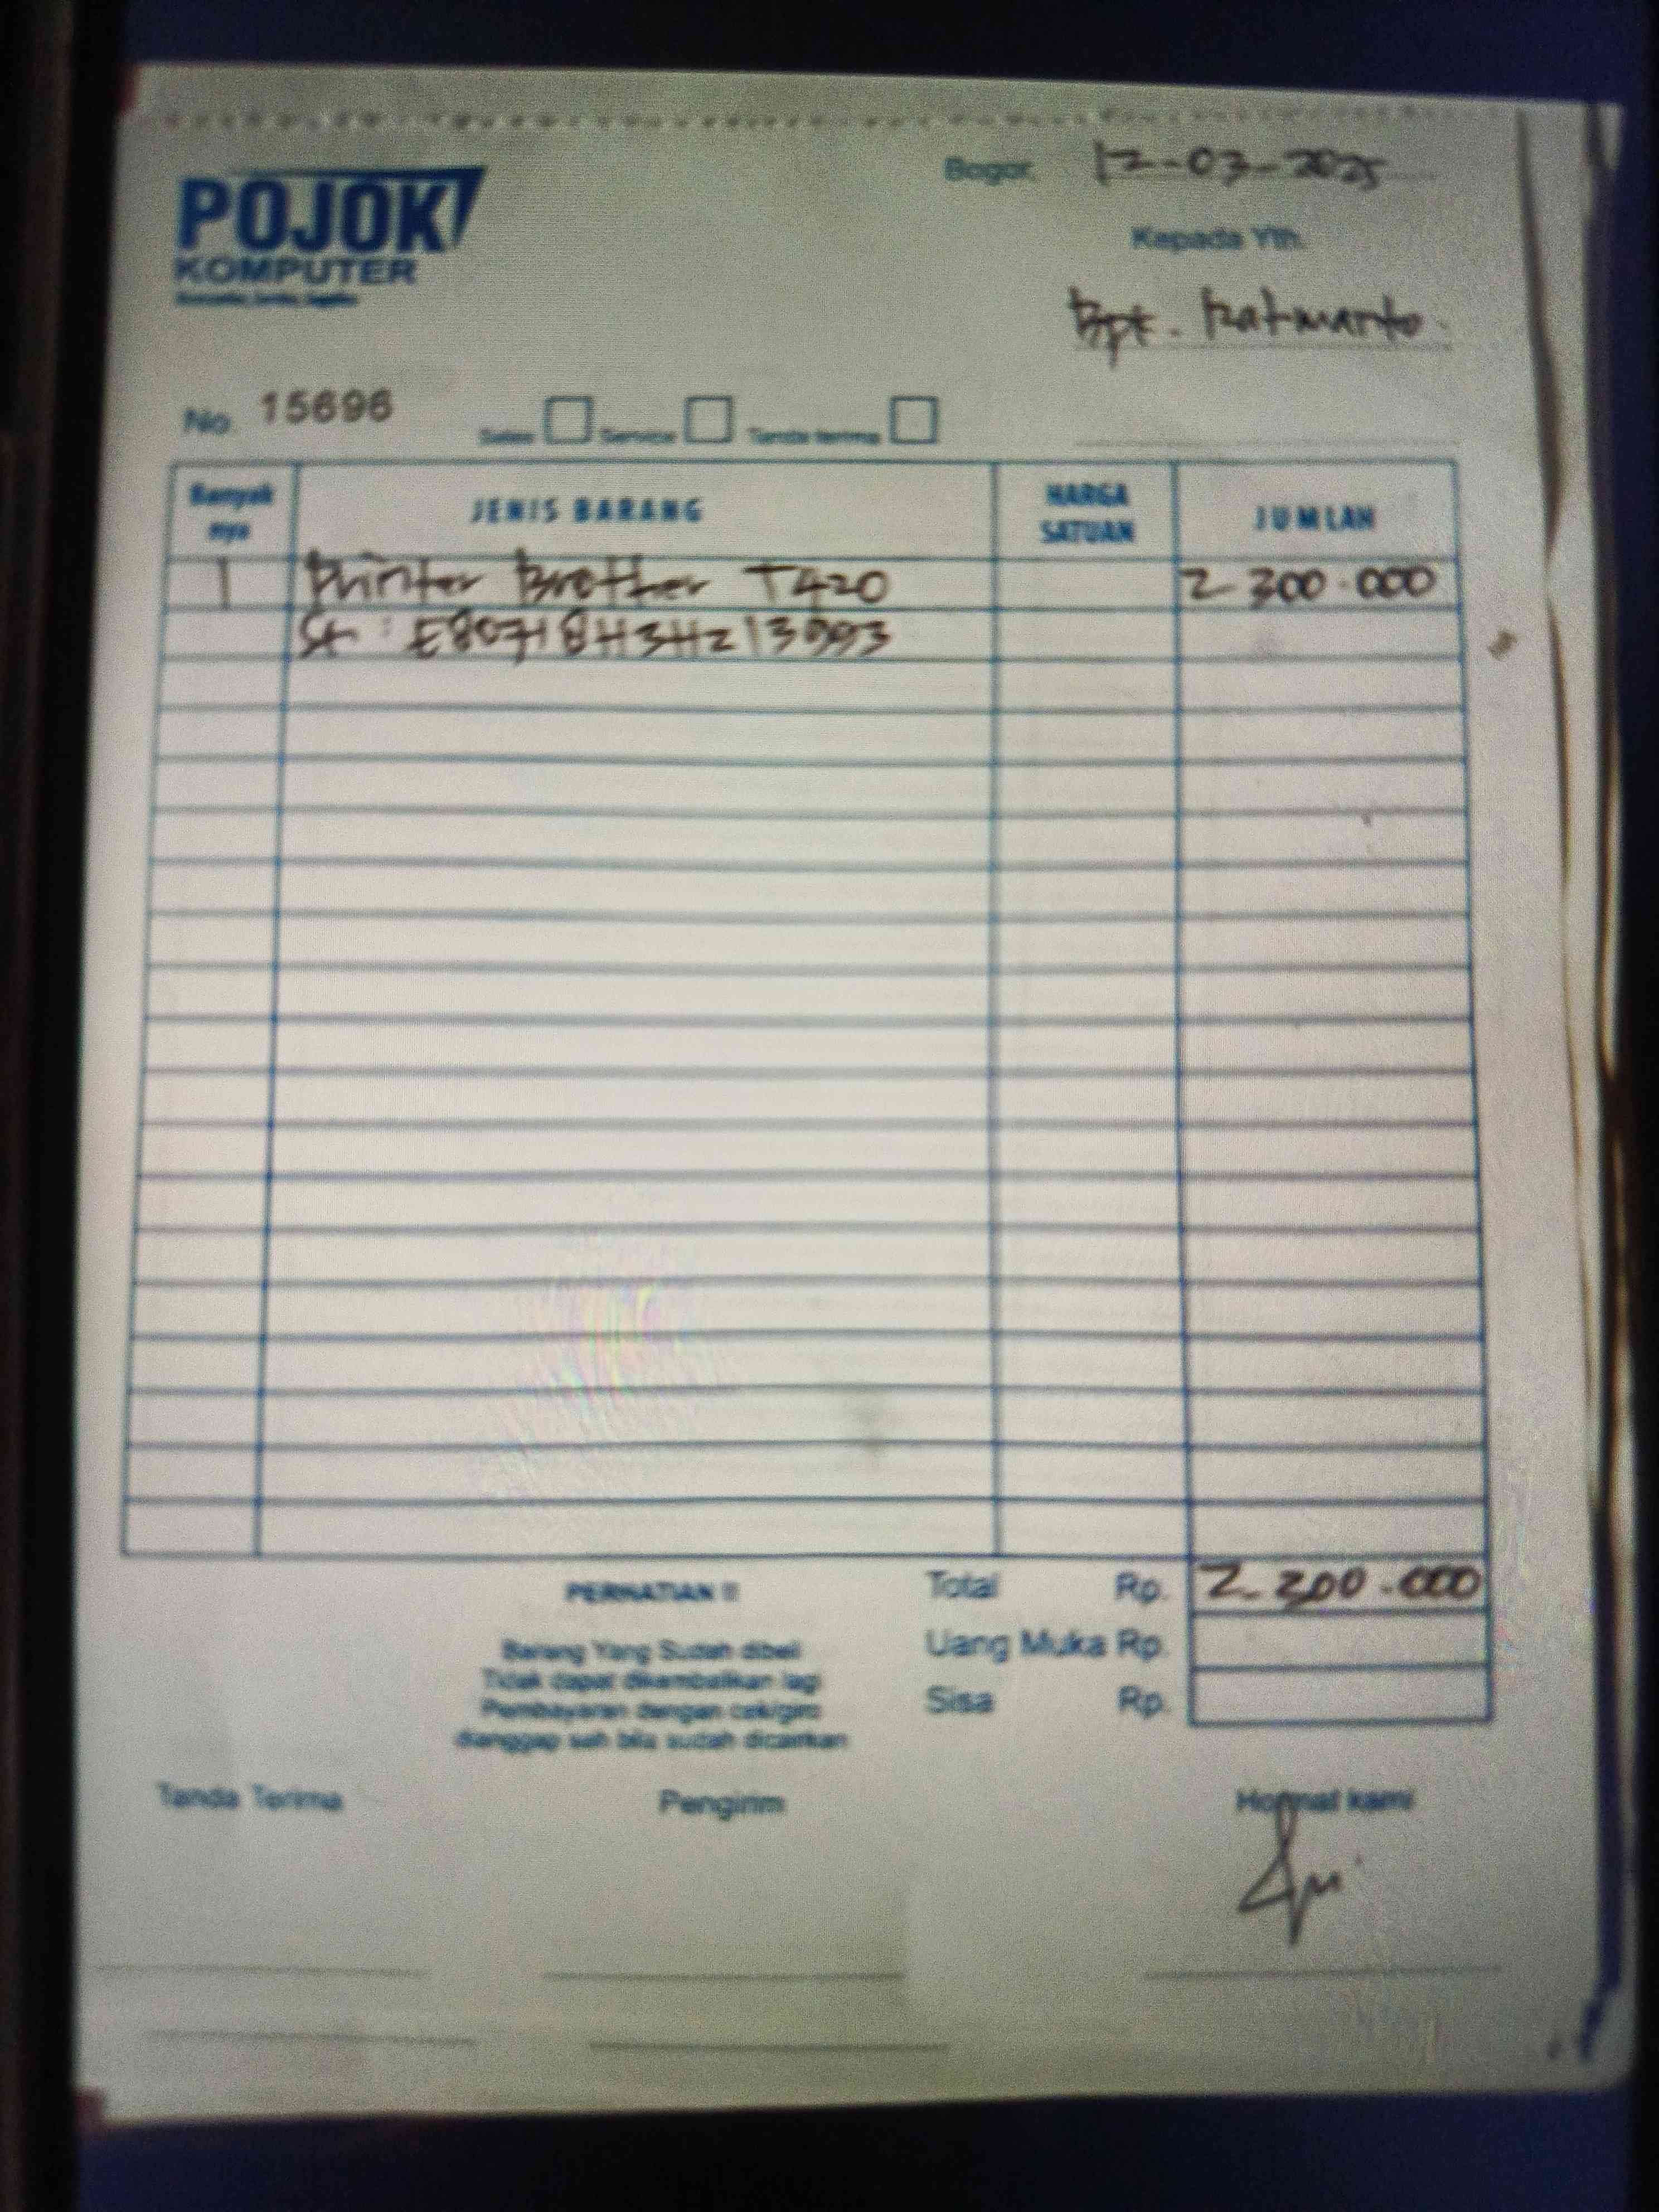 Bogor, 12-03-2025
POJOK
KOMPUTER
Kepada Yth.
Bpk. Ratmanto.
No. 15696
Sales Service Tanda terima
Banyak nya JENIS BARANG HARGA SATUAN JUMLAH
1 Printer Brother T420 2 300.000
Total Rp. 2 300.000
Uang Muka Rp.
Sisa Rp.
PERHATIAN !!
Barang Yang Sudah dibeli
Tidak dapat dikembalikan lagi
Pembayaran dengan cek/giro
dianggap sah bila sudah dicairkan
Tanda Terima Pengirim Hormat kami